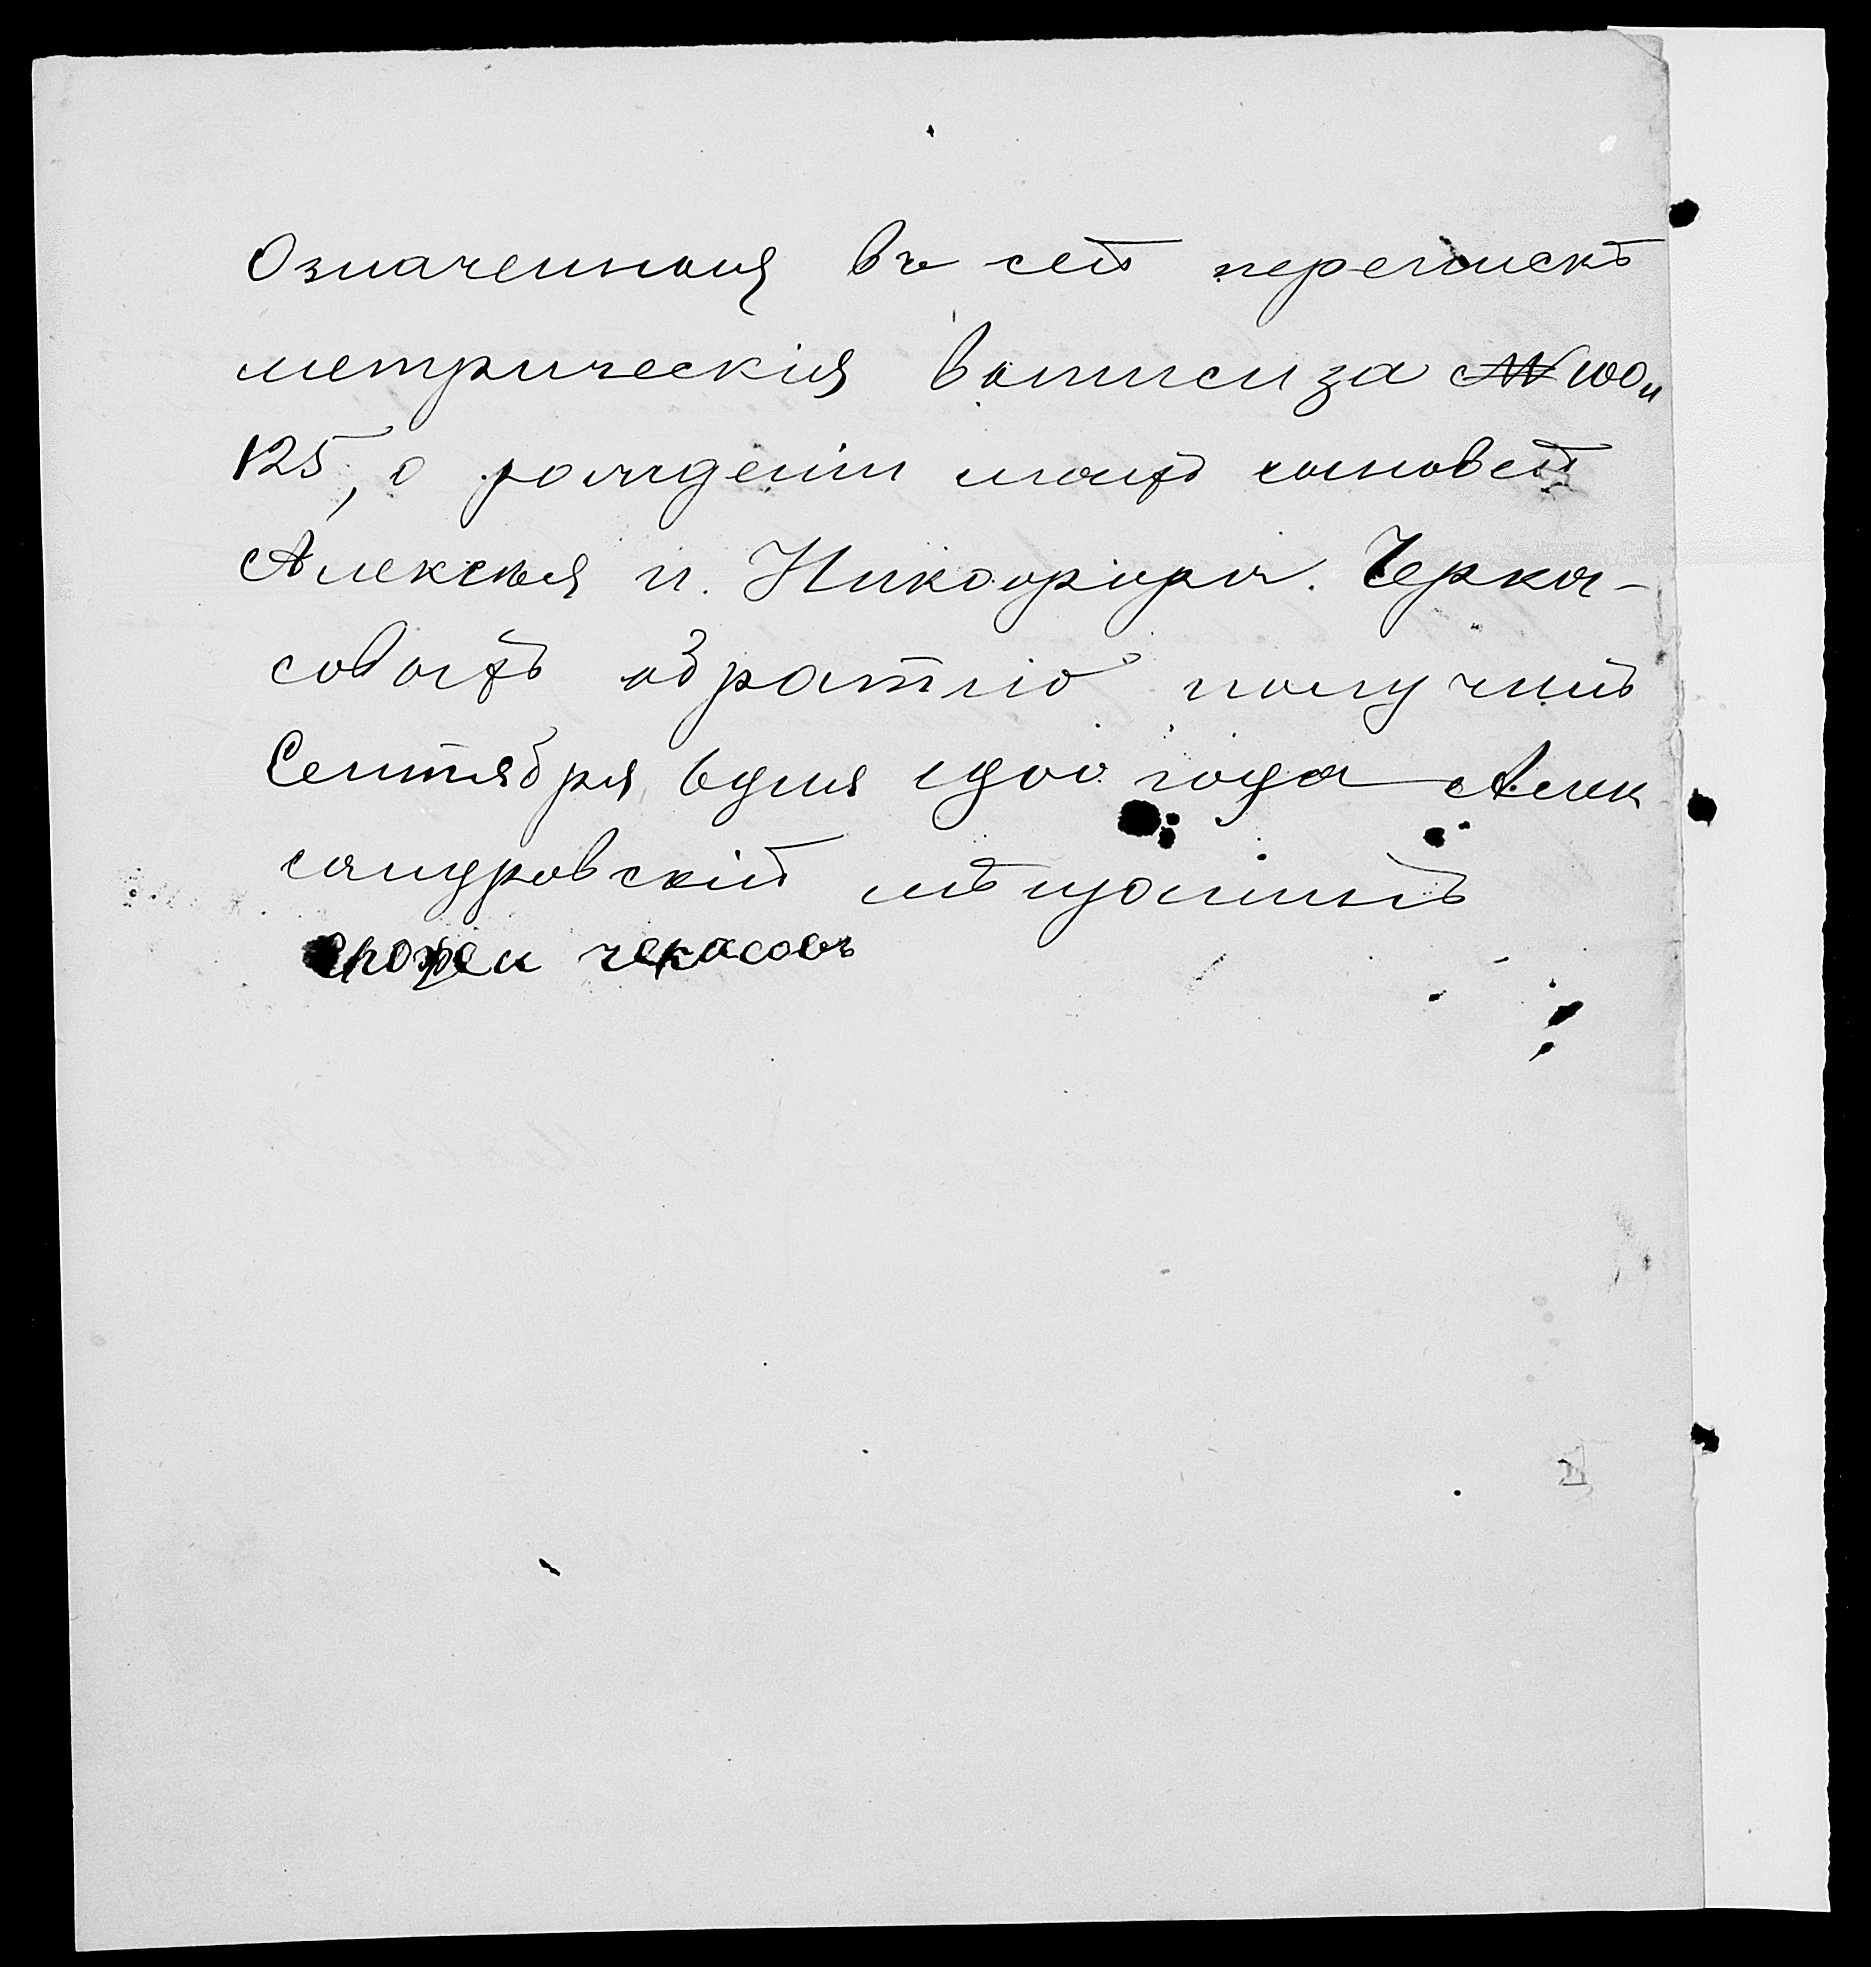 Означенныя въ сей перепискѣ
метрическія выписи за № 100 и
125, о рожденіи моихъ сыновей
Алексѣя и Никифора Черка-
совыхъ обратно получилъ
Сентября 6 дня 1900 года Алек
сандровскій мѣщанинъ
чекасовъ